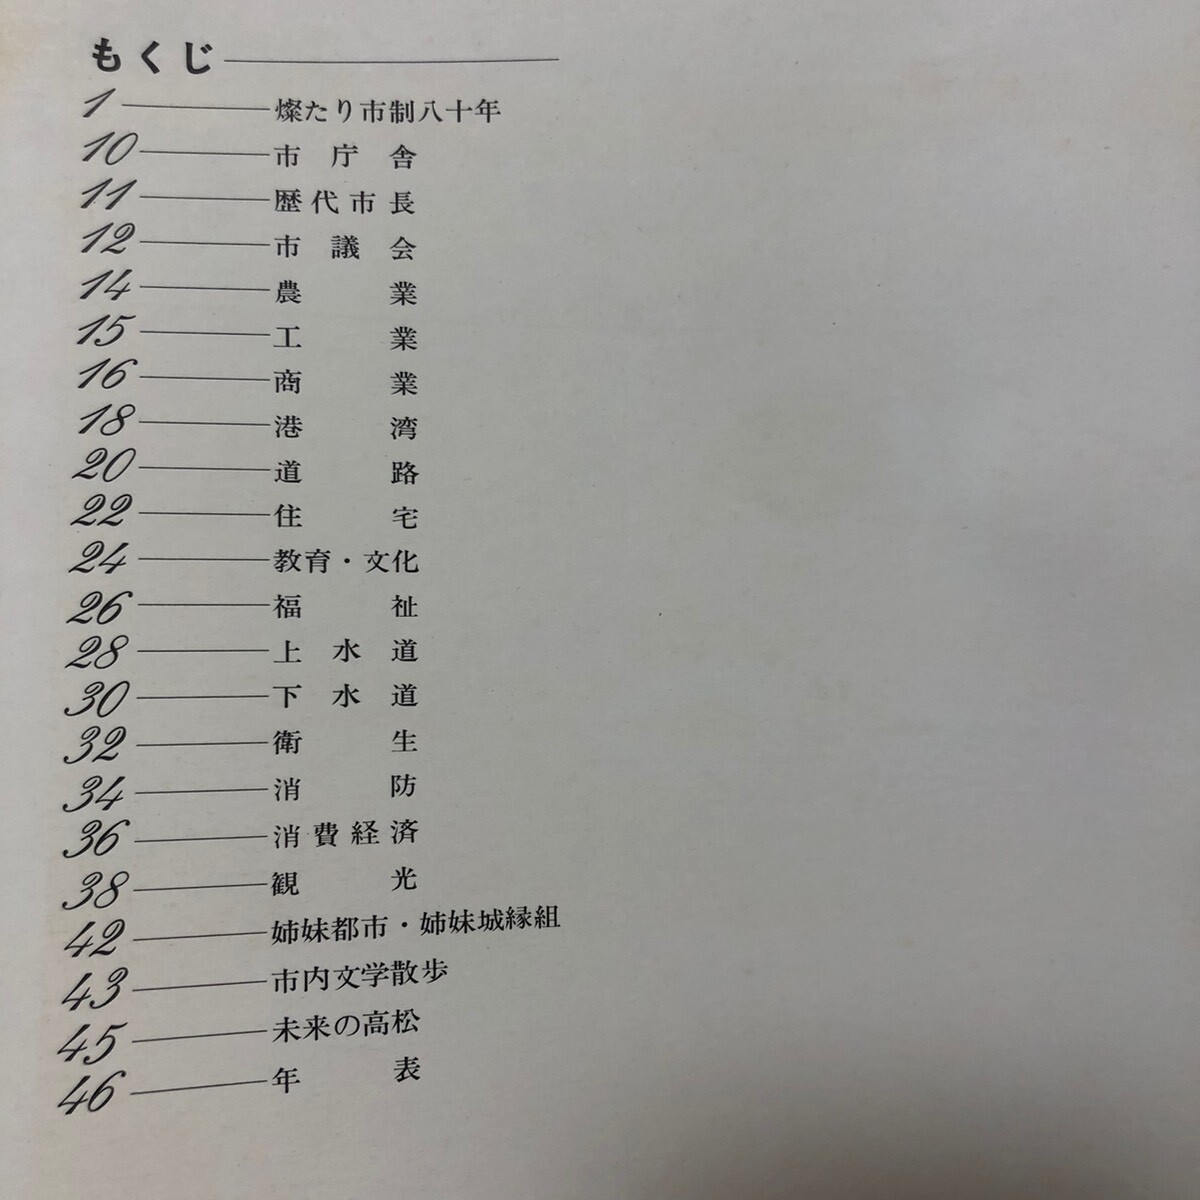 もくじ
1 燦たり市制八十年
10 市庁舎
11 歴代市長
12 市議会
14 農業
15 工業
16 商業
18 港湾
20 道路
22 住宅
24 教育・文化
26 福祉
28 上水道
30 下水道
32 衛生
34 消防
36 消費経済
38 観光
42 姉妹都市・姉妹城縁組
43 市内文学散歩
45 未来の高松
46 年表